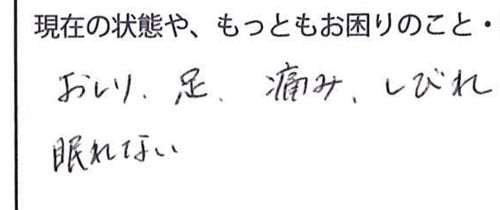 現在の状態や、もっともお困りのこと・
おしり、足、痛み、しびれ
眠れない